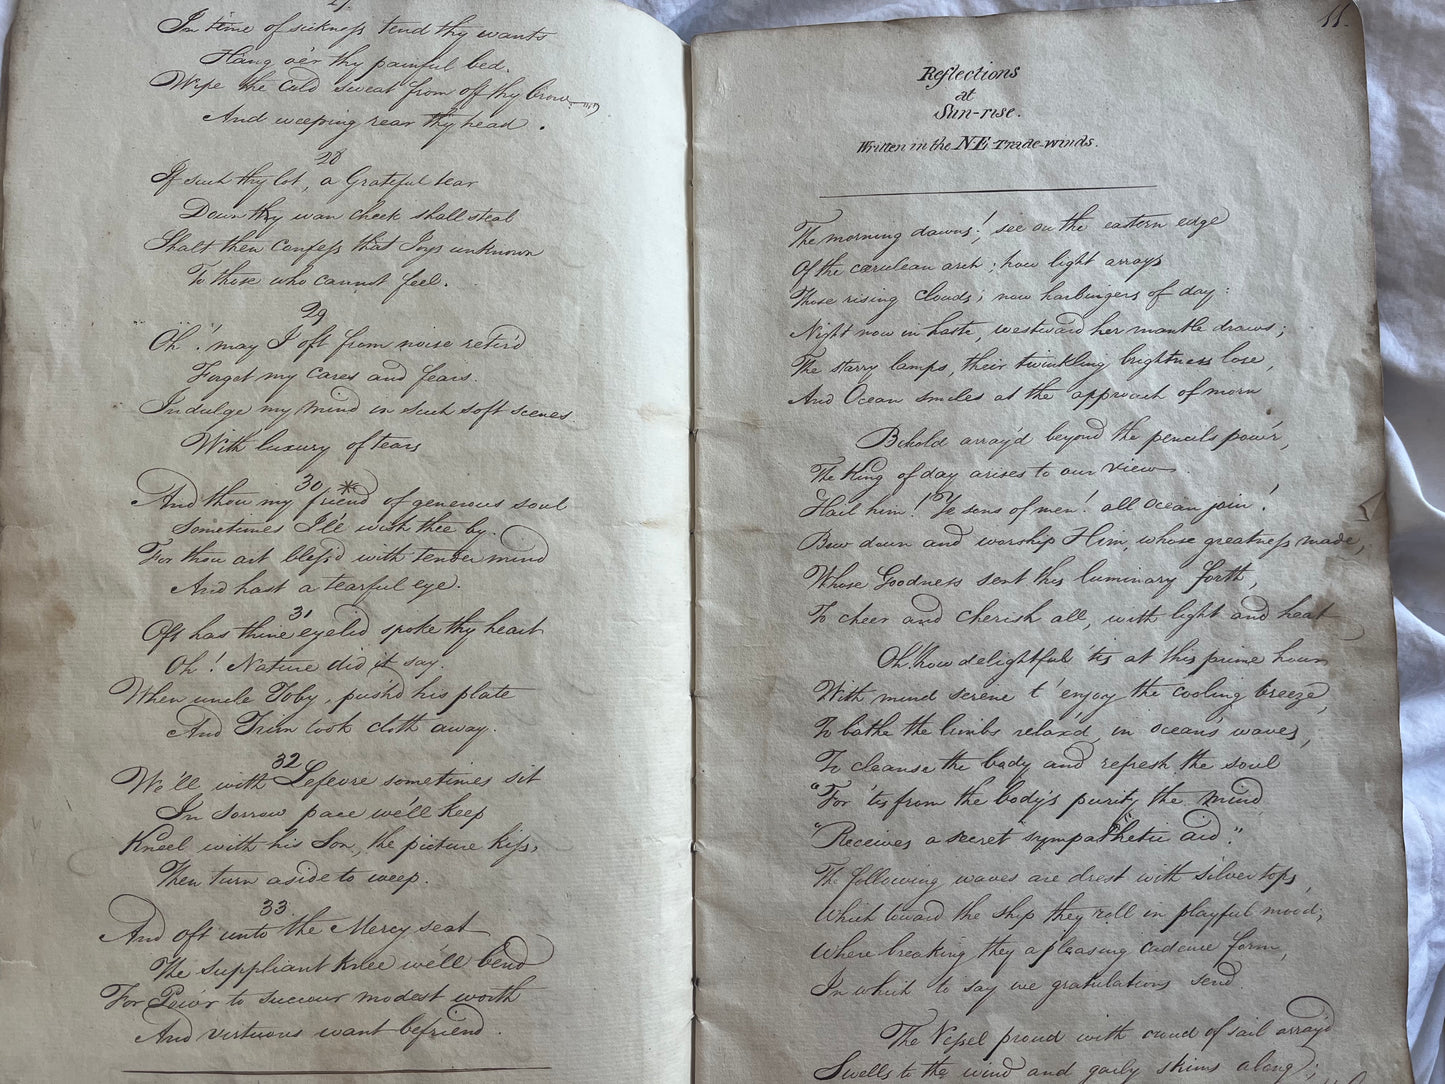 27
In time of sickness tend thy wants
Hang o'er thy painful bed.
Wipe the Cold sweat from off thy brow
And weeping rear thy head.
28
If such thy lot, a Grateful tear
Down thy wan cheek shall steal
Shalt then confess that Joys unknown
To those who cannot feel.
29
Oh! may I oft from noise retir'd
Forget my Cares and fears.
Indulge my mind in such soft scenes
With luxury of tears
30
And thou my friend * of generous soul
Sometimes I'll wish thee by.
For thou art bless'd with tender mind
And hast a tearful eye.
31
Oft has thine eyelid spoke thy heart
Oh! Nature did it say.
When uncle Toby, push'd his plate
And Trim took cloth away.
32
We'll with Lefevre sometimes sit
In sorrow pace we'll keep
Kneel with his Son, the picture kiss,
Then turn aside to weep.
33
And oft unto the Mercy seat
The suppliant knee we'll bend
For Pow'r to succour modest worth
And virtuous want befriend.
11.
Reflections
at
Sun-rise.
Written in the NE Trade-winds.
The morning dawns! see on the eastern edge
Of the cærulean arch; how light arrays
Those rising Clouds; now harbingers of day:
Night now in haste, westward her mantle draws;
The starry lamps, their twinkling brightness lose,
And Ocean smiles at the approach of morn
Behold array'd beyond the pencils pow'r,
The King of day arises to our view
Hail him! Ye sons of men! all Ocean join!
Bow down and worship Him, whose greatness made,
Whose Goodness sent this luminary forth,
To cheer and cherish all, with light and heat
Oh! how delightful 'tis at this prime hour
With mind serene t'enjoy the cooling breeze,
To bathe the limbs relax'd, in ocean's waves,
To cleanse the body and refresh the soul
"For 'tis from the body's purity the mind
"Receives a secret sympathetic aid".
The following waves are drest with silver tops,
Which toward the ship they roll in playful mood;
Where breaking they a pleasing cadence form,
In which to say we gratulations send
The Vessel proud with crowd of sail array'd
Swells to the wind and gaily skims along;